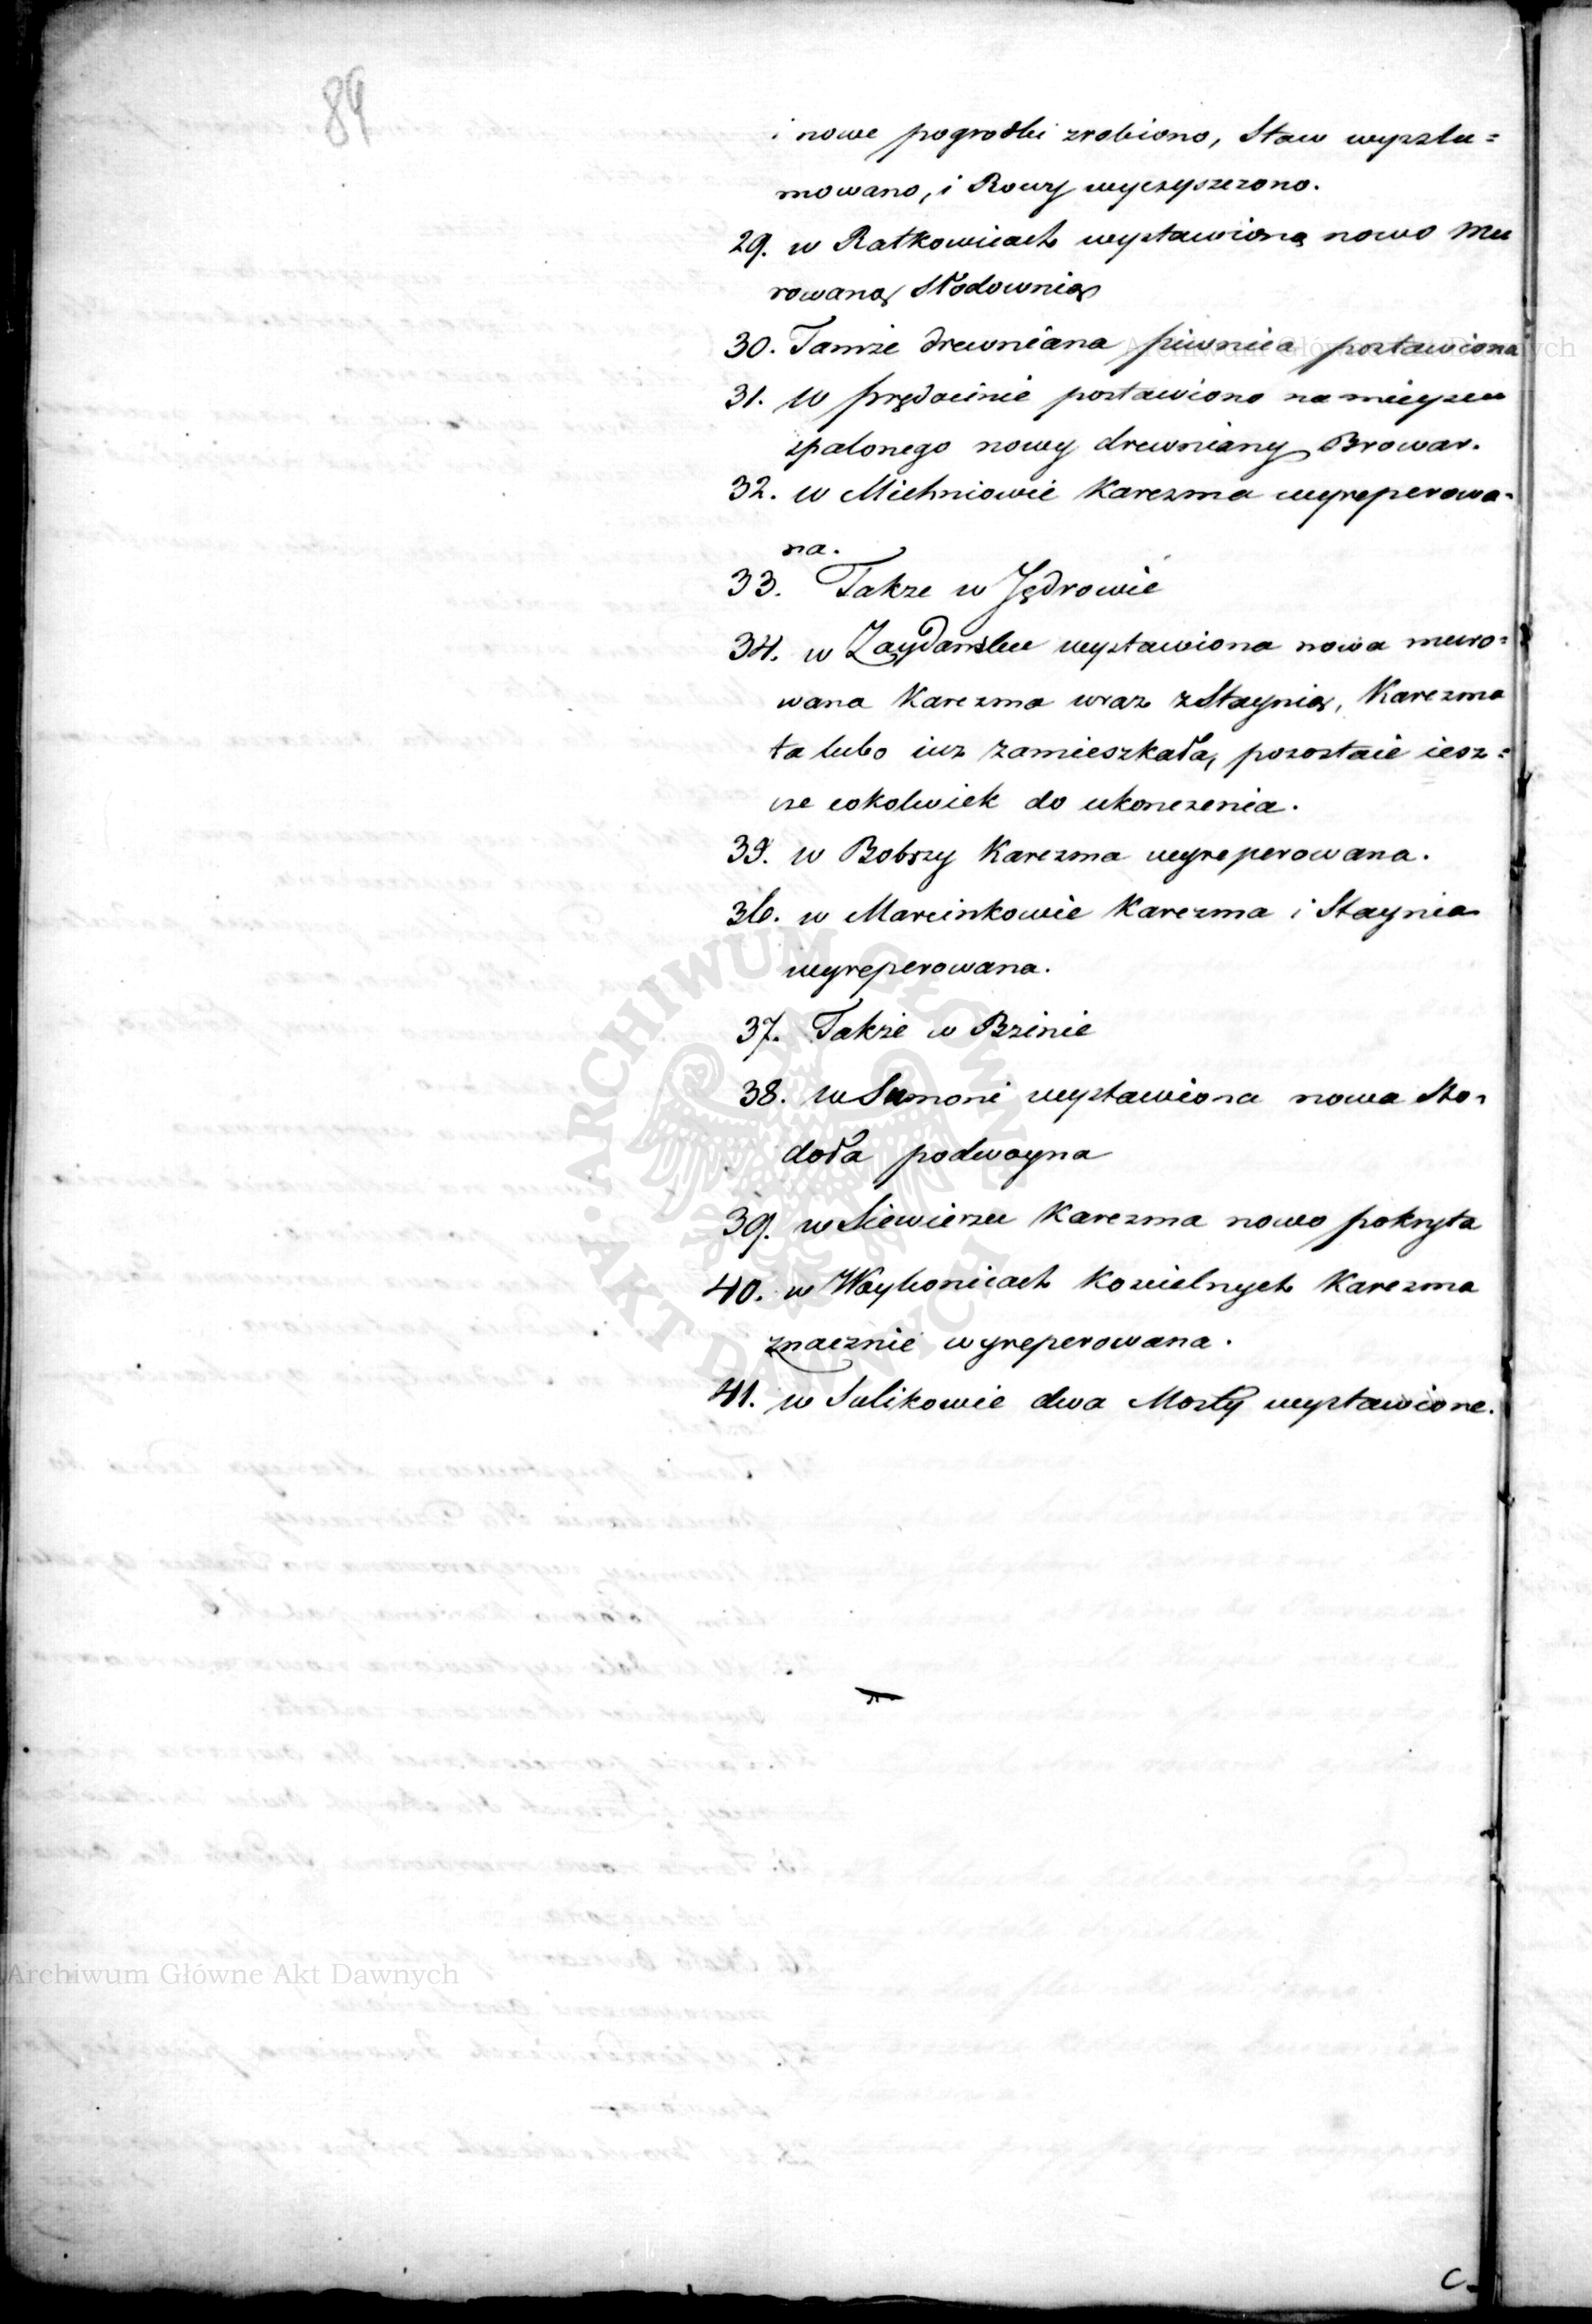 84
i nowe pogrodki zrobiono, Staw wyszlu=
mowano, i Rowy wyczyszczono.
29. w Ratkowicach wystawioną nowo mu
rowaną Słodownią
30. Tamże drewniana piwnica postawiona
31. w Prędocinie postawiono na mieyscu
spalonego nowy drewniany Browar.
32. w Michniowie Karczma wyreperowa=
na.
33. Takze w Jędrowie
34. w Zagdansku wystawiona nowa muro=
wana Karczma wraz z Staynią, Karczma
ta lubo iuz zamieszkała, pozostaie iesz=
cze cokolwiek do ukonczenia.
35. w Bobrzy Karczma wyreperowana.
36. w Marcinkowie Karczma i Staynia
wyreperowana.
37. Także w Bzinie
38. w Sumoni wystawiona nowa Sto=
doła podwoyna
39. w Siewierzu Karczma nowo pokryta
40. w Woykonicach Koscielnych Karczma
znacznie wyreperowana.
41. w Sulikowie dwa Mosty wystawione.
C.
Archiwum Główne Akt Dawnych
Archiwum Główne Akt Dawnych
ARCHIWUM GŁÓWNE AKT DAWNYCH